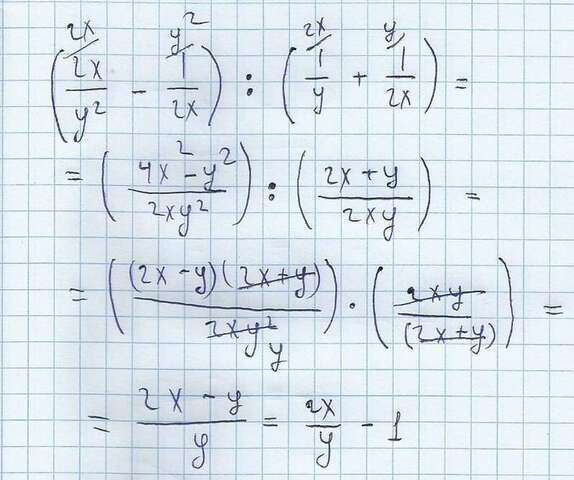 (2x/y² - 1/2x) : (1/y + 1/2x) =
= (4x² - y²/2xy²) : (2x + y/2xy) =
= ((2x - y)(2x + y)/2xy² y) · (2xy/(2x + y)) =
= 2x - y/y = 2x/y - 1